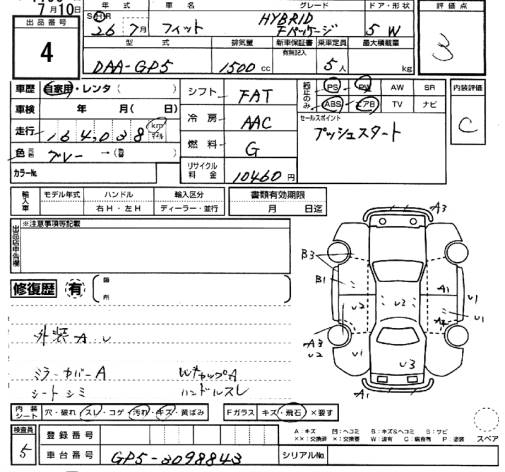 年式 車名 グレード ドア・形状 評価点
7月10日
出品番号
4
S・H・R 26年 7月 フィット HYBRID Fパッケージ 5 W
3
型式 排気量 新車保証書 乗車定員 最大積載量
有無記入
DAA-GP5 1500 cc 5人 kg
車歴 自家用・レンタ ( )
シフト FAT
純正のみ PS PW AW SR
ABS エアB TV ナビ
内装評価
C
車検 年 月( 日)
冷房 AAC
セールスポイント
プッシュスタート
走行 164,038 km マイル
燃料 G
色 グレー →(替 )
リサイクル料金 10460円
カラーNo.
輸入車 モデル年式 ハンドル 輸入区分 書類有効期限
右H・左H ディーラー・並行 月 日迄
※注意事項等記載
修復歴 有
箇所
外装 A U
ミラーカバーA Wキャップ A
シートシミ ハンドルスレ
A3
B3
B1
A1
U1
U2
U2
U1
A3
U2
U1
U3
A1
内装シート 穴・破れ スレ・コゲ 汚れ・キズ・黄ばみ Fガラス キズ・飛石 ×要す
検査員
5
登録番号
A:キズ 凹:ヘコミ B:キズ&ヘコミ S:サビ
スペア
車台番号 GP5-3098843 シリアルNo.